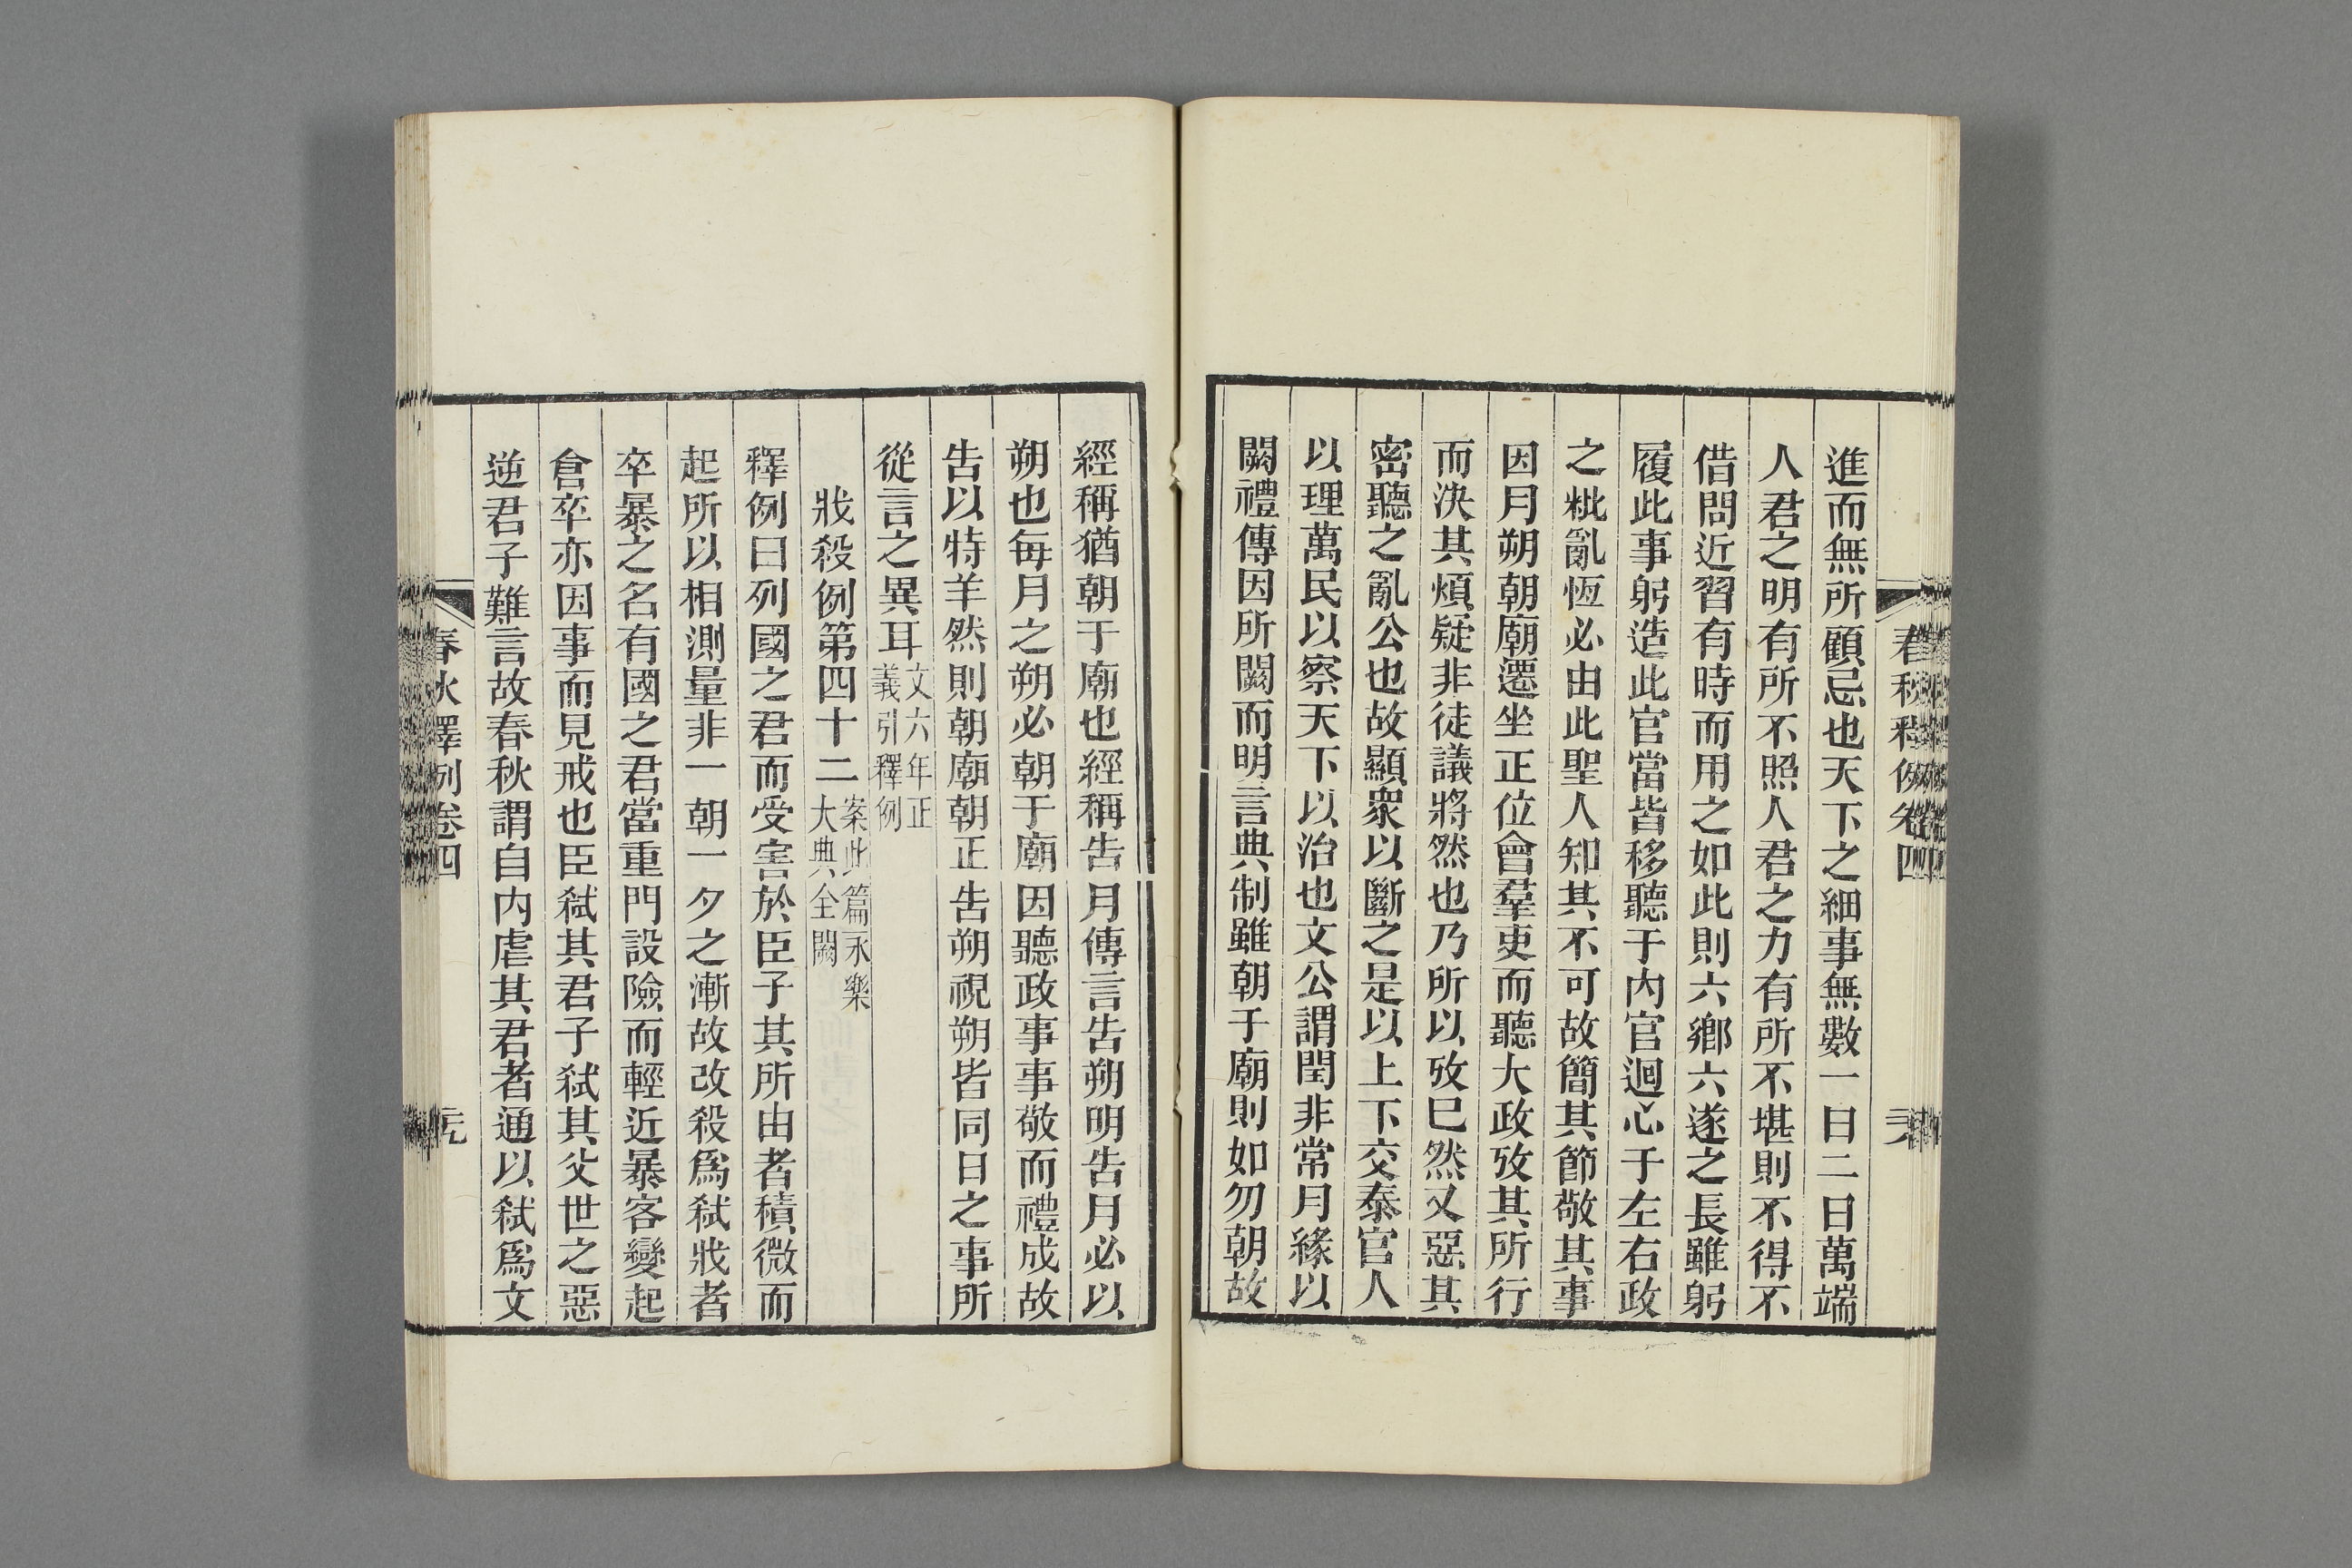 春秋釋例卷四
進而無所顧忌也天下之細事無數一日二日萬端
人君之明有所不照人君之力有所不堪則不得不
借問近習有時而用之如此則六鄉六遂之長雖躬
履此事躬造此官當皆移聽于内官迴心于左右政
之粃亂恆必由此聖人知其不可故簡其節敬其事
因月朔朝廟遷坐正位會羣吏而聽大政攷其所行
而決其煩疑非徒議將然也乃所以攷已然又惡其
密聽之亂公也故顯衆以斷之是以上下交泰官人
以理萬民以察天下以治也文公謂閏非常月緣以
闕禮傳因所闕而明言典制雖朝于廟則如勿朝故
經稱猶朝于廟也經稱告月傳言告朔明告月必以
朔也每月之朔必朝于廟因聽政事事敬而禮成故
告以特羊然則朝廟朝正告朔視朔皆同日之事所
從言之異耳文六年正
義引釋例
戕殺例第四十二案此篇永樂
大典全闕
釋例曰列國之君而受害於臣子其所由者積微而
起所以相測量非一朝一夕之漸故改殺爲弑戕者
卒暴之名有國之君當重門設險而輕近暴客變起
倉卒亦因事而見戒也臣弑其君子弑其父世之惡
逆君子難言故春秋謂自内虐其君者通以弑爲文
春秋釋例卷四